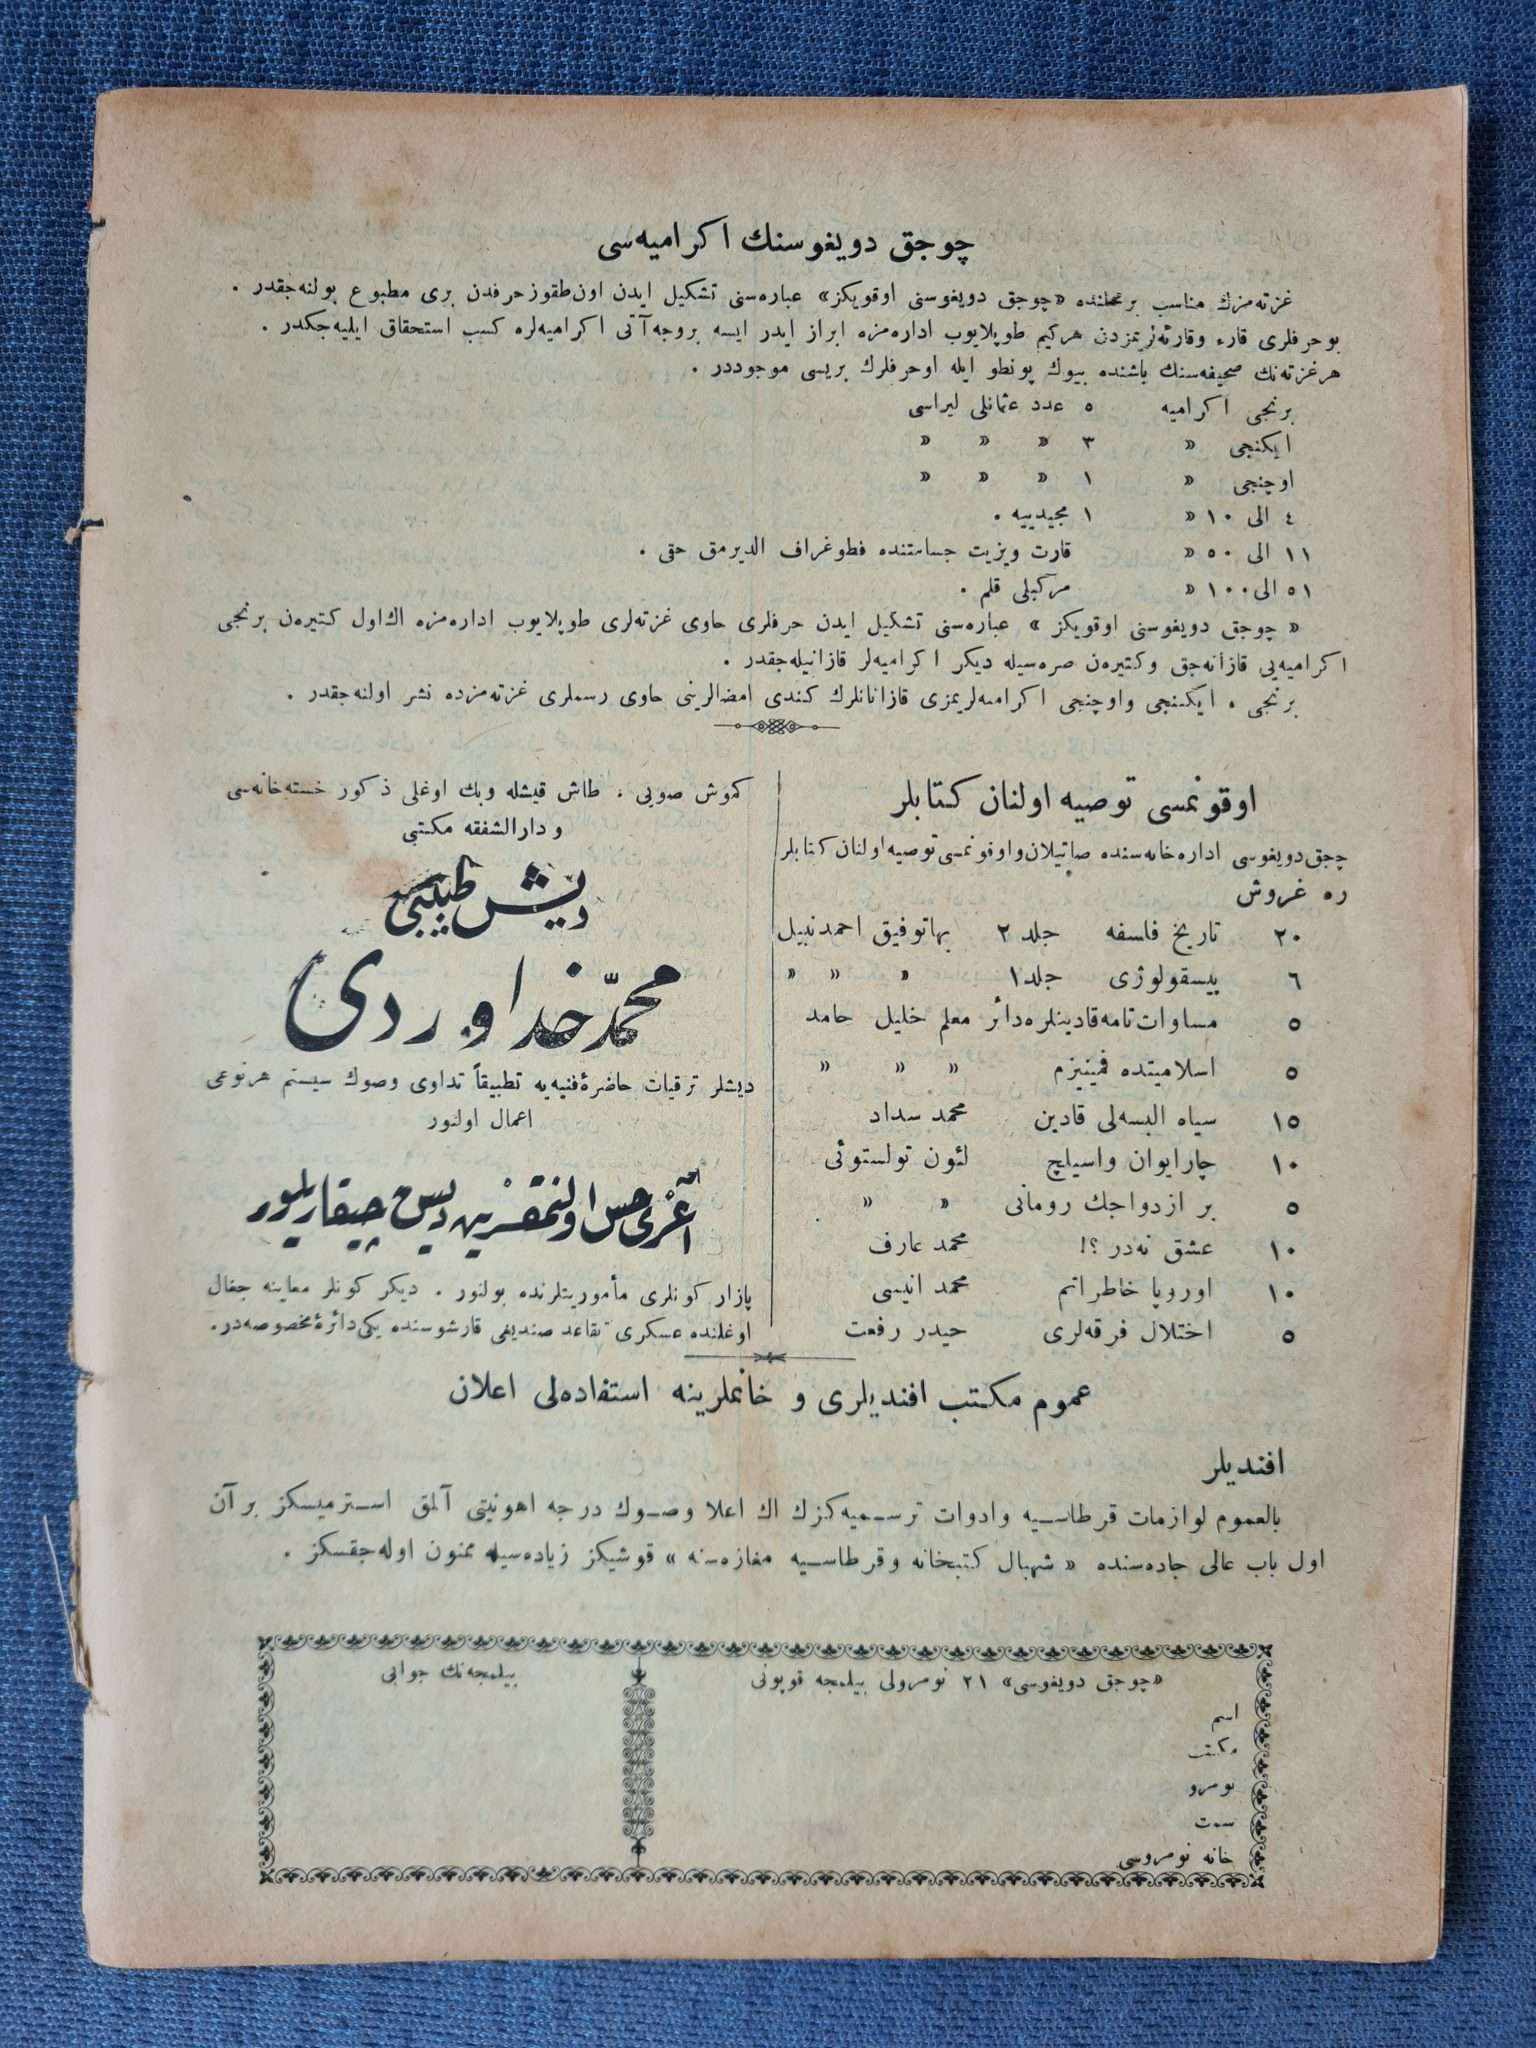 چوجق دويغوسنك اكراميه‌سی
غزته‌مزك مناسب بر محلنده «چوجق دويغوسنی اوقويكز» عباره‌سنی تشكيل ايدن اون‌طقوز حرفدن بری مطبوع بولنه‌جقدر .
بو حرفلری قارء وقارئه‌لريمزدن هركيم طوپلايوب اداره‌مزه ابراز ايدر ايسه بروجه‌آتی اكراميه‌لره كسب استحقاق ايليه‌جكدر .
هر غزته‌نك صحيفه‌سنك باشنده بيوك پونطو ايله اوحرفلرك بريسی موجوددر .
برنجی اكراميه ٥ عدد عثمانلی ليراسی
ايكنجی » ٣ » » »
اوچنجی » ١ » » »
٤ الی ١٠ » ١ مجيدييه .
١١ الی ٥٠ » قارت ويزيت جسامتنده فطوغراف الديرمق حقی .
٥١ الی ١٠٠ » مركبلی قلم .
« چوجق دويغوسنی اوقويكز » عباره‌سنی تشكيل ايدن حرفلری حاوی غزته‌لری طوپلايوب اداره‌مزه اك‌اول كتيره‌ن برنجی
اكراميه‌يی قازانه‌جق وكتيره‌ن صره‌سيله ديكر اكراميه‌لر قازانيله‌جقدر .
برنجی ، ايكنجی واوچنجی اكراميه‌لريمزی قازانانلرك كندی امضالرينی حاوی رسملری غزته‌مزده نشر اولنه‌جقدر .
اوقونمسی توصيه اولنان كتابلر
چجق دويغوسی اداره‌خانه‌سنده صاتيلان واوقونمسی توصيه اولنان كتابلر
ره غروش
٢٠ تاريخ فلسفه جلد ٢ بها توفيق احمد نبيل
٦ پيسقولوژی جلد ١ » » »
٥ مساوات تامه قادينلره دائر معلم خليل حامد
٥ اسلاميتده فمينيزم » » »
١٥ سياه البسه‌لی قادين محمد سداد
١٠ چار ايوان واسيلچ لئون تولستوئی
٥ بر ازدواجك رومانی » »
١٠ عشق نه‌در ؟! محمد عارف
١٠ اوروپا خاطراتم محمد انيسی
٥ اختلال فرقه‌لری حيدر رفعت
كموش صويی ، طاش قيشله وبك اوغلی ذكور خسته‌خانه‌سی
ودارالشفقه مكتبی
ديش طبيبی
محمّد خداوردی
ديشلر ترقيات حاضرهٔ فنيه‌يه تطبيقاً تداوی وصوك سيستم هرنوعی
اعمال اولنور
آغری حس اولنمقسزين ديش چيقاريليور
پازار كونلری مأموريتلرنده بولنور . ديكر كونلر معاينه جغال
اوغلنده عسكری تقاعد صنديغی قارشوسنده‌يكی دائرهٔ مخصوصه‌در.
عموم مكتب افنديلری و خانملرينه استفاده‌لی اعلان
افنديلر
بالعموم لوازمات قرطاسيه وادوات ترسميه‌كزك اك اعلا وصوك درجه اهونيتی آلمق استرميسكز بر آن
اول باب عالی جاده‌سنده « شهبال كتبخانه وقرطاسيه مغازه‌سنه » قوشيكز زياده‌سيله ممنون اوله‌جقسكز .
«چوجق دويغوسی» ٢١ نومرولی بيلمجه قوپونی
اسم
مكتب
نومرو
سمت
خانه نومروسی
بيلمجه‌نك جوابی